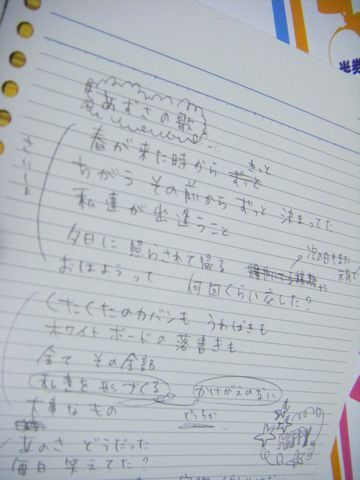 あずさの歌
春が来た時から きっと
ちがう その前から ずっと 決まってた
私達が出逢うこと
夕日に 照らされて帰る
次の日もまた
元気で
おはようって 何回くらい交した？
くたくたのカバンも うわばきも
ホワイトボードの落書きも
全て その全部
私達を形づくる かけがえのない
大事なもの どちらか
HAPPY
あのさ どうだった
毎日 笑えてた？